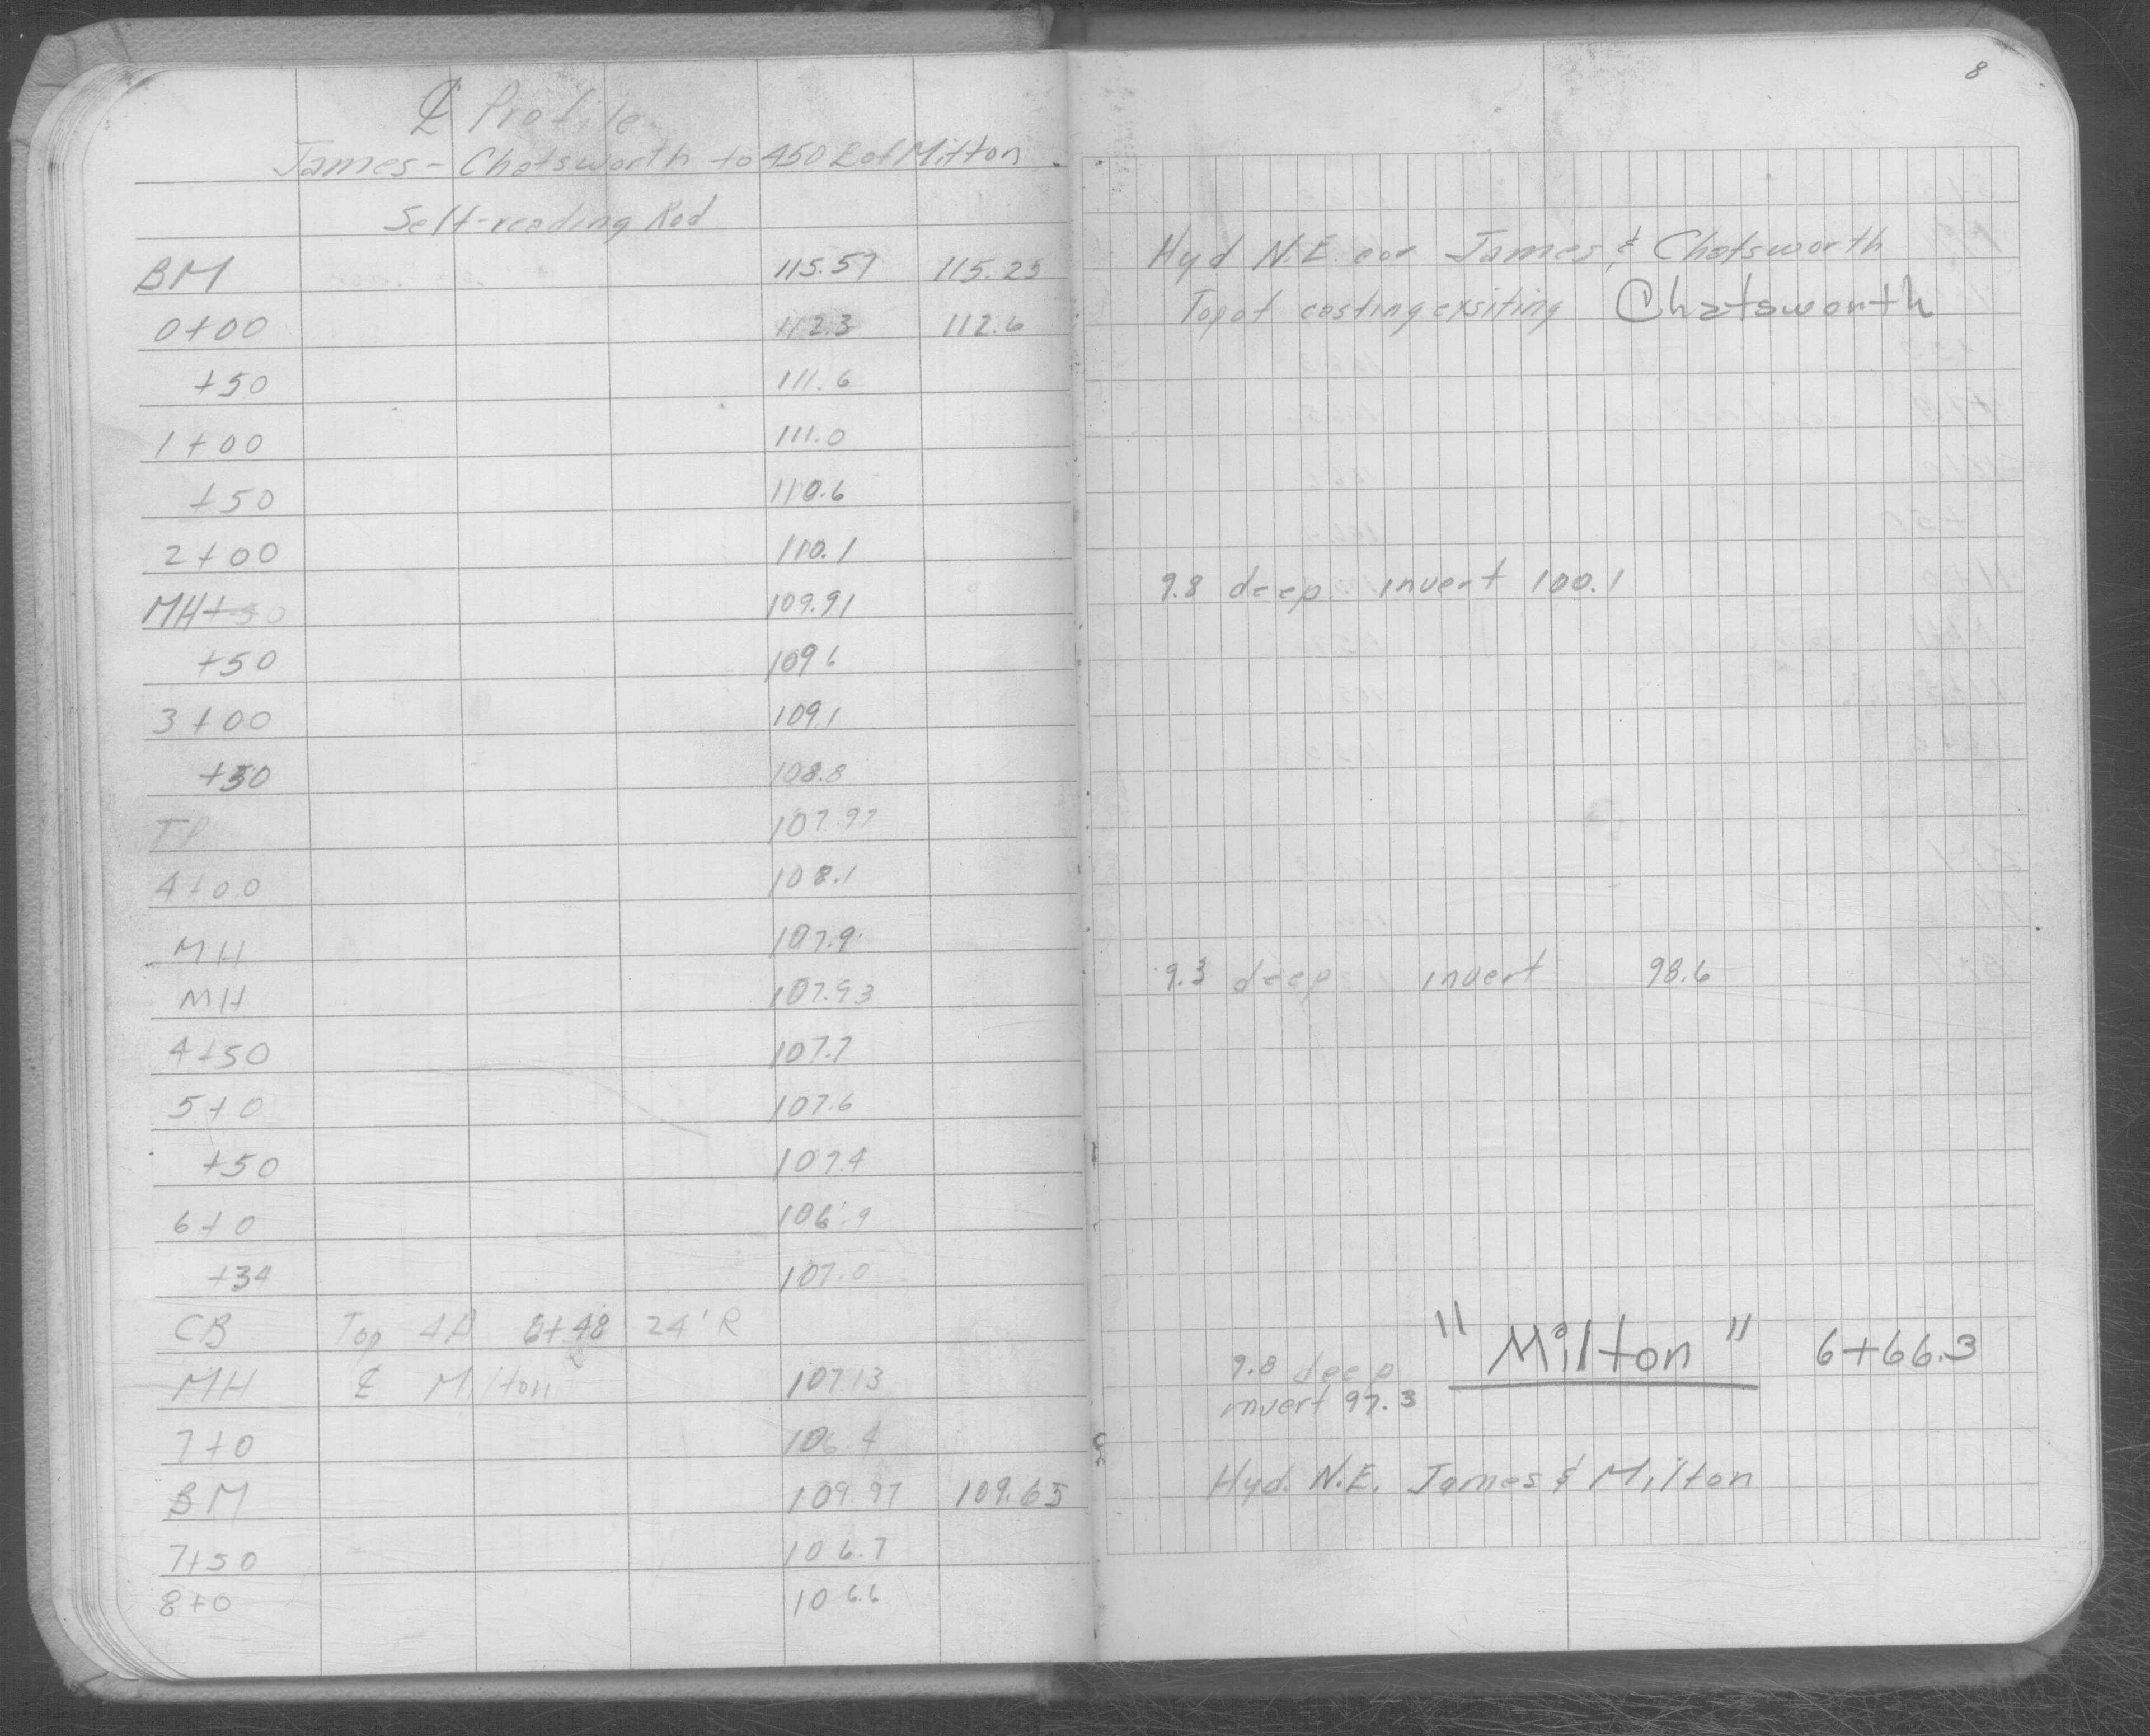 ℄ Profile
James - Chatsworth to 450 E of Milton
Self-reading Rod
BM 115.57 115.25
0+00 112.3 112.6
+50 111.6
1+00 111.0
+50 110.6
2+00 110.1
MH +50 109.91
+50 109.6
3+00 109.1
+50 108.8
TP 107.97
4+00 108.1
MH 107.9
MH 107.93
4+50 107.7
5+0 107.6
+50 107.4
6+0 106.9
+34 107.0
CB Top 4A 6+48 24' R
MH ℄ Milton 107.13
7+0 106.4
BM 109.97 109.65
7+50 106.7
8+0 106.6
8
Hyd N.E. cor James & Chatsworth
Top of casting exsiting Chatsworth
9.8 deep invert 100.1
9.3 deep invert 98.6
"Milton" 6+66.3
9.8 deep
invert 97.3
Hyd. N.E. James & Milton